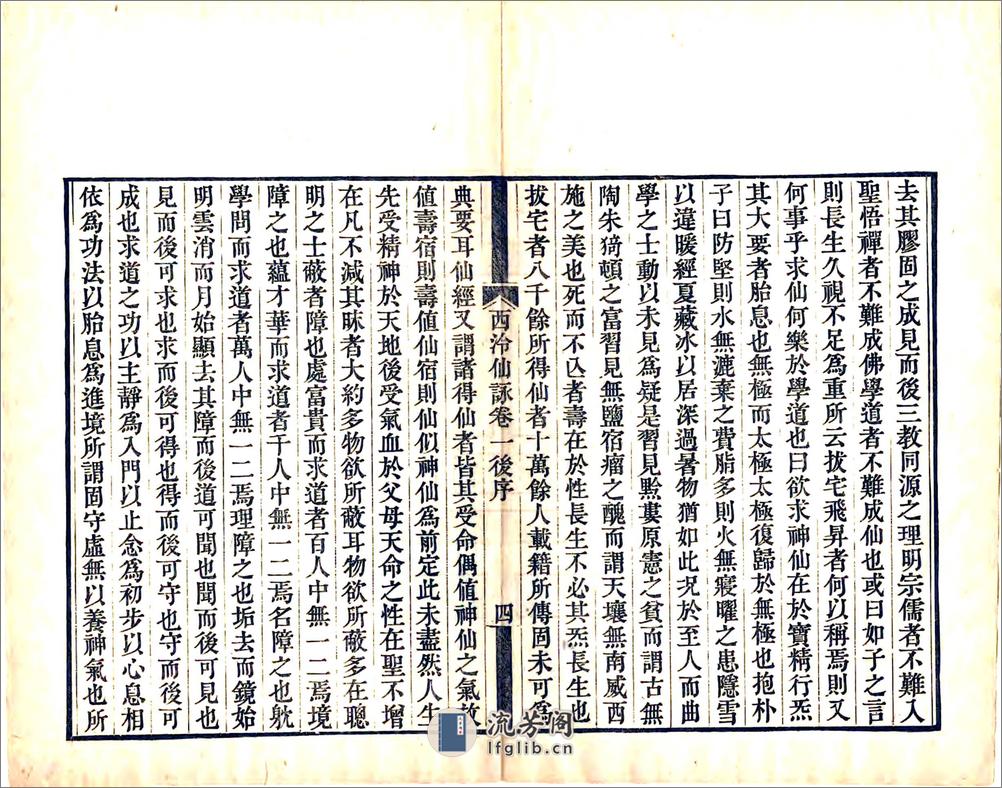 去其膠固之成見而後三教同源之理明宗儒者不難入
聖悟禪者不難成佛學道者不難成仙也或曰如子之言
則長生久視不足爲重所云拔宅飛昇者何以稱焉則又
何事乎求仙何樂於學道也曰欲求神仙在於寶精行炁
其大要者胎息也無極而太極太極復歸於無極也抱朴
子曰防堅則水無漉棄之費脂多則火無寢曜之患隱雪
以違暖經夏藏冰以居深過暑物猶如此况於至人而曲
學之士動以未見爲疑是習見黔婁原憲之貧而謂古無
陶朱猗頓之富習見無鹽宿瘤之醜而謂天壤無南威西
施之美也死而不亾者壽在於性長生不必其炁長生也
拔宅者八千餘所得仙者十萬餘人載籍所傳固未可爲
西泠仙詠卷一後序
四
典要耳仙經又謂諸得仙者皆其受命偶值神仙之氣故
值壽宿則壽值仙宿則仙似神仙爲前定此未盡然人生
先受精神於天地後受氣血於父母天命之性在聖不增
在凡不減其昧者大約多物欲所蔽耳物欲所蔽多在聰
明之士蔽者障也處富貴而求道者百人中無一二焉境
障之也蘊才華而求道者千人中無一二焉名障之也躭
學問而求道者萬人中無一二焉理障之也垢去而鏡始
明雲消而月始顯去其障而後道可聞也聞而後可見也
見而後可求也求而後可得也得而後可守也守而後可
成也求道之功以主靜爲入門以止念爲初步以心息相
依爲功法以胎息爲進境所謂固守虛無以養神氣也所
流芳阁
lfglib.cn